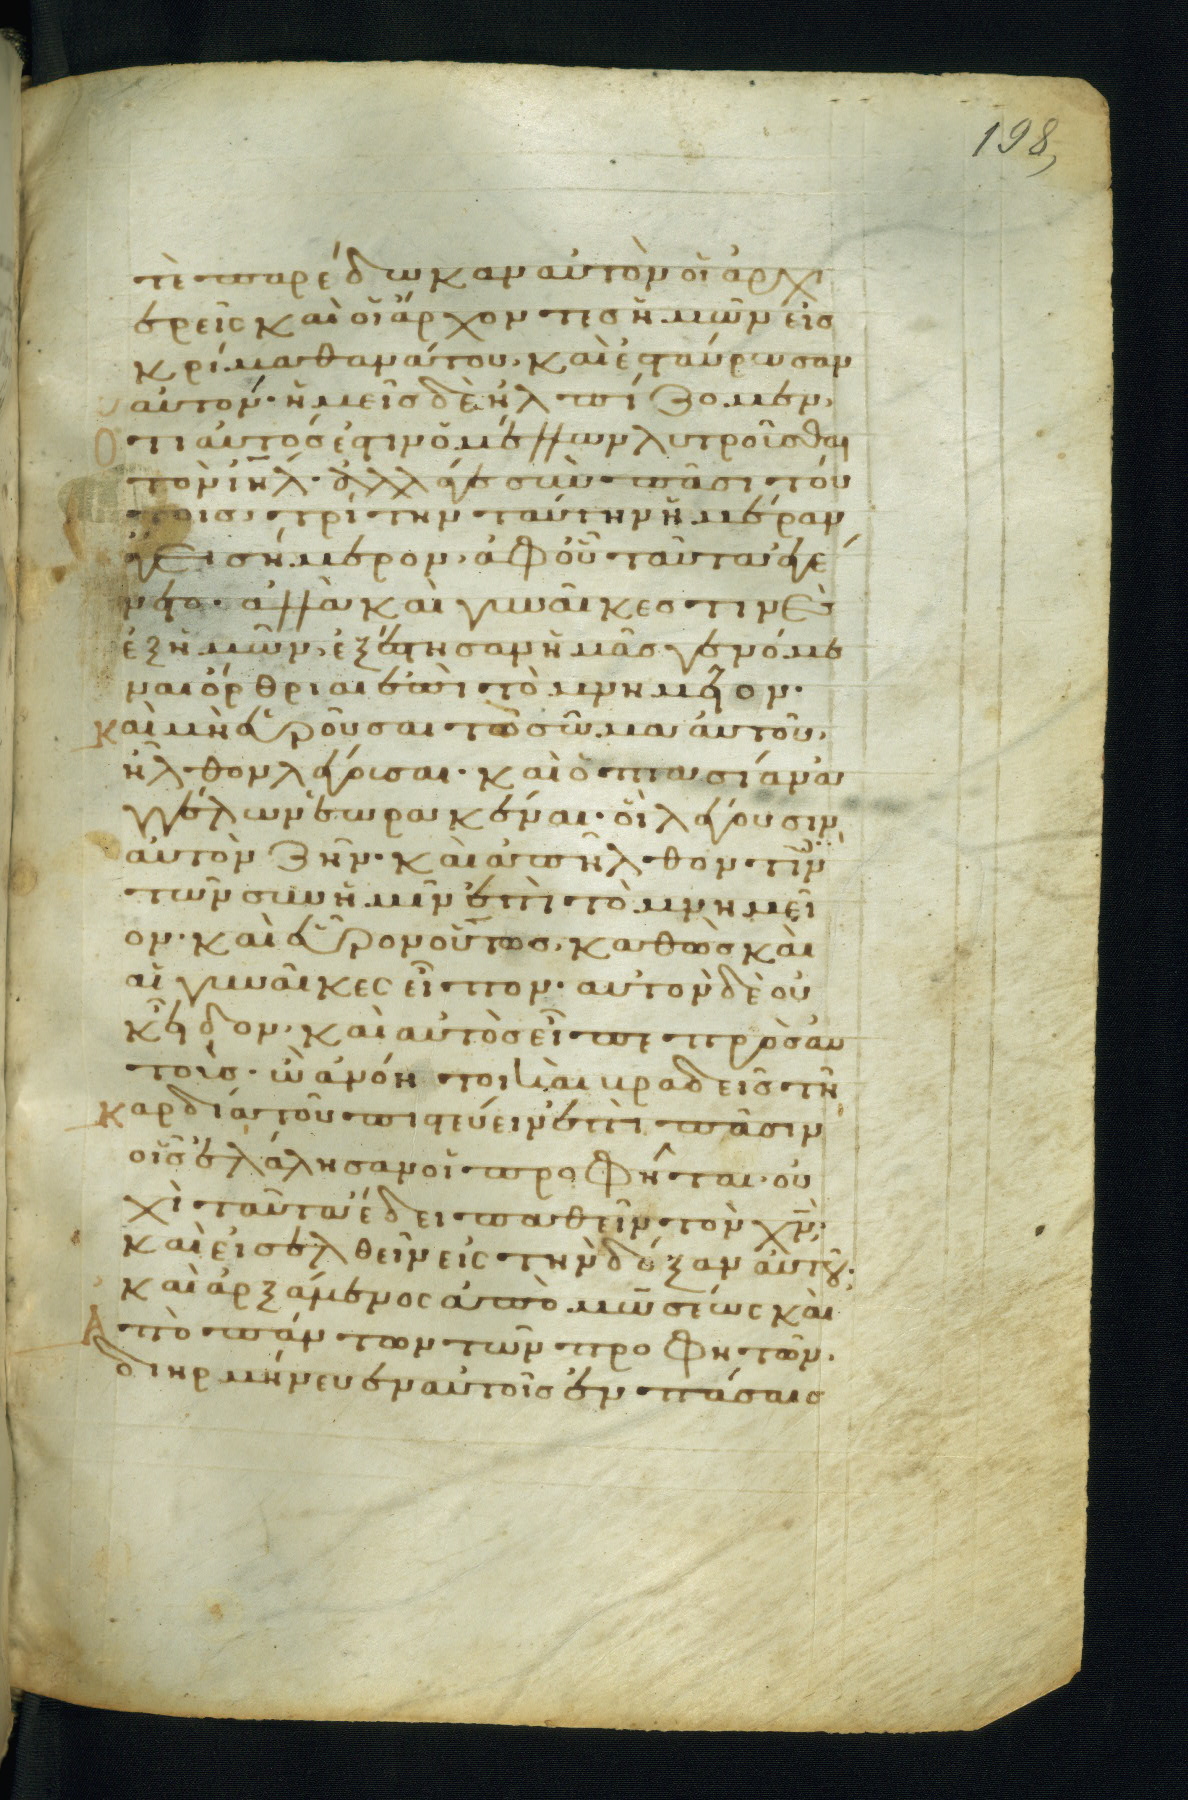 198,
τὲ παρέδωκαν αὐτὸν οἱ ἀρχι
ερεῖς καὶ οἱ ἄρχοντες ἡμῶν εἰς
κρίμα θανάτου, καὶ ἐσταύρωσαν
αυτόν· ἡμεῖς δὲ ἠλπίζομεν,
ὅτι ἀυτός ἐστιν ὁ μέλλων λυτροῦσθαι
τὸν ἰηλ· ἀλλάγε σὺν πᾶσι τού
τοις, τρίτην ταύτην ἡμέραν
ἄγει σήμερον, ἀφ οὗ ταῦτα ἐγέ
νετο· ἀλλὰ καὶ γυναῖκες τινὲς
ἐξ ἡμῶν, ἐξέστησαν ἡμᾶς γενόμε
ναι ὄρθριαι ἐπὶ τὸ μνημεῖον·
καὶ μὴ εὑροῦσαι τὸ σῶμα ἀυτοῦ,
ἦλθον λέγουσαι· καὶ ὀπτασίαν ἀγ
γέλων ἑωρακέναι· οἳ λέγουσιν
αυτὸν ζῆν· καὶ ἀπῆλθον τινὲς
τῶν σὺν ἡμῖν ἐπὶ τὸ μνημεῖ
ον· καὶ εὗρον οὕτως, καθὼς κὰι
αἱ γυναῖκες εἶπον· αυτὸν δὲ οὐ
κ εἶδον, καὶ αυτὸς εἶπε πρὸς αυ
τούς· ὦ ἀνόητοι καὶ βραδεῖς τῆ
καρδία τοῦ πιστεύειν ἐπὶ πᾶσιν
οἷς ἐλάλησαν οἱ προφῆται· ου
χὶ ταῦτα ἔδει παθεῖν τὸν χν·
καὶ εἰσελθεῖν εἰς τὴν δόξαν ἀυτοῦ·
καὶ ἀρξάμενος ἀπὸ μωσέως κὰι
Απὸ πάντων τῶν προφητῶν,
διηρμήνευεν αὐτοῖς ἐν πάσαις